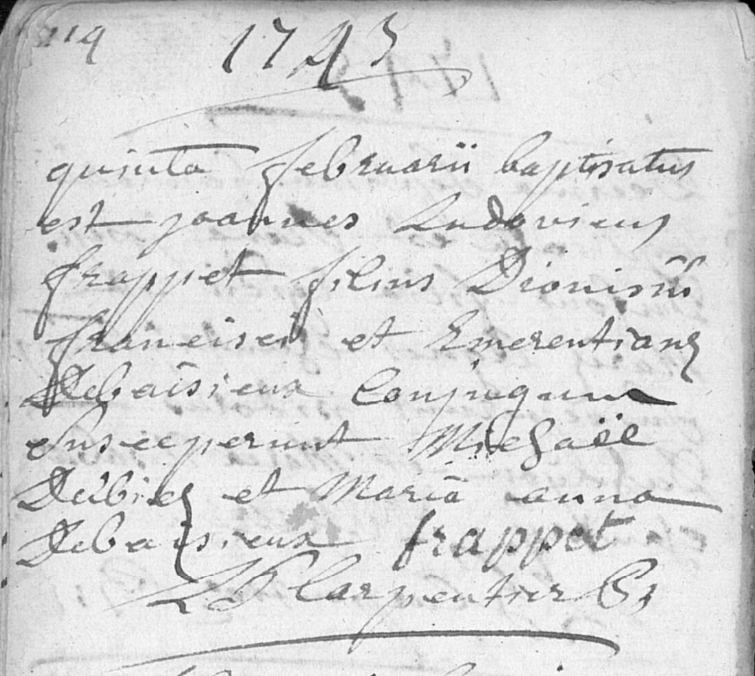 119
1743
quinta februarii baptisatus
est joannes Ludovicus
frappet filius Dionisii
francisci et Emerentianæ
Debaisieux Conjugum
Susceperunt Michaël
Dubiez et Maria anna
Debaisieux frappet
Carpentier